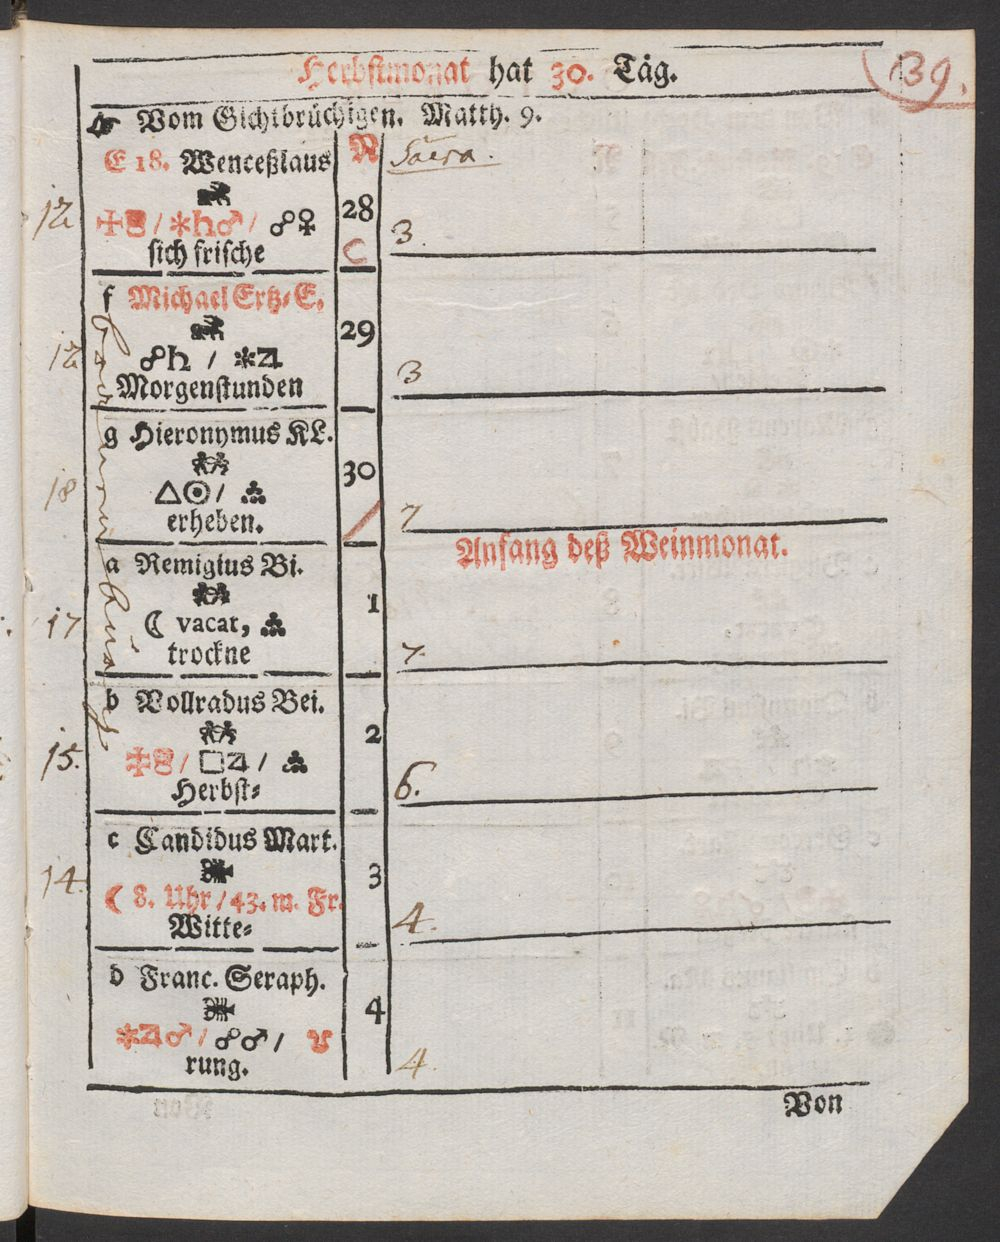 Herbstmonat hat 30. Täg.
139.
Vom Gichtbrüchigen. Matth. 9.
E 18. Wenceßlaus
N
28
☩ / ✱♄♂ / ☍♀
C
sich frische
12
3.
f Michael Ertz⸗E.
29
☍♄ / ✱♃
Morgenstunden
12
3
g Hieronymus KL.
30
△☉ /
erheben.
18
7
Anfang deß Weinmonat.
a Remigius Bi.
1
☾ vacat,
trockne
17
7.
b Vollradus Bei.
2
☩ / □♃ /
Herbst⸗
15.
6.
c Candidus Mart.
3
☾ 8. Uhr / 43. m. Fr.
Witte⸗
14.
4.
d Franc. Seraph.
4
✱♃♂ / ☍♂ / ☋
rung.
4.
Von